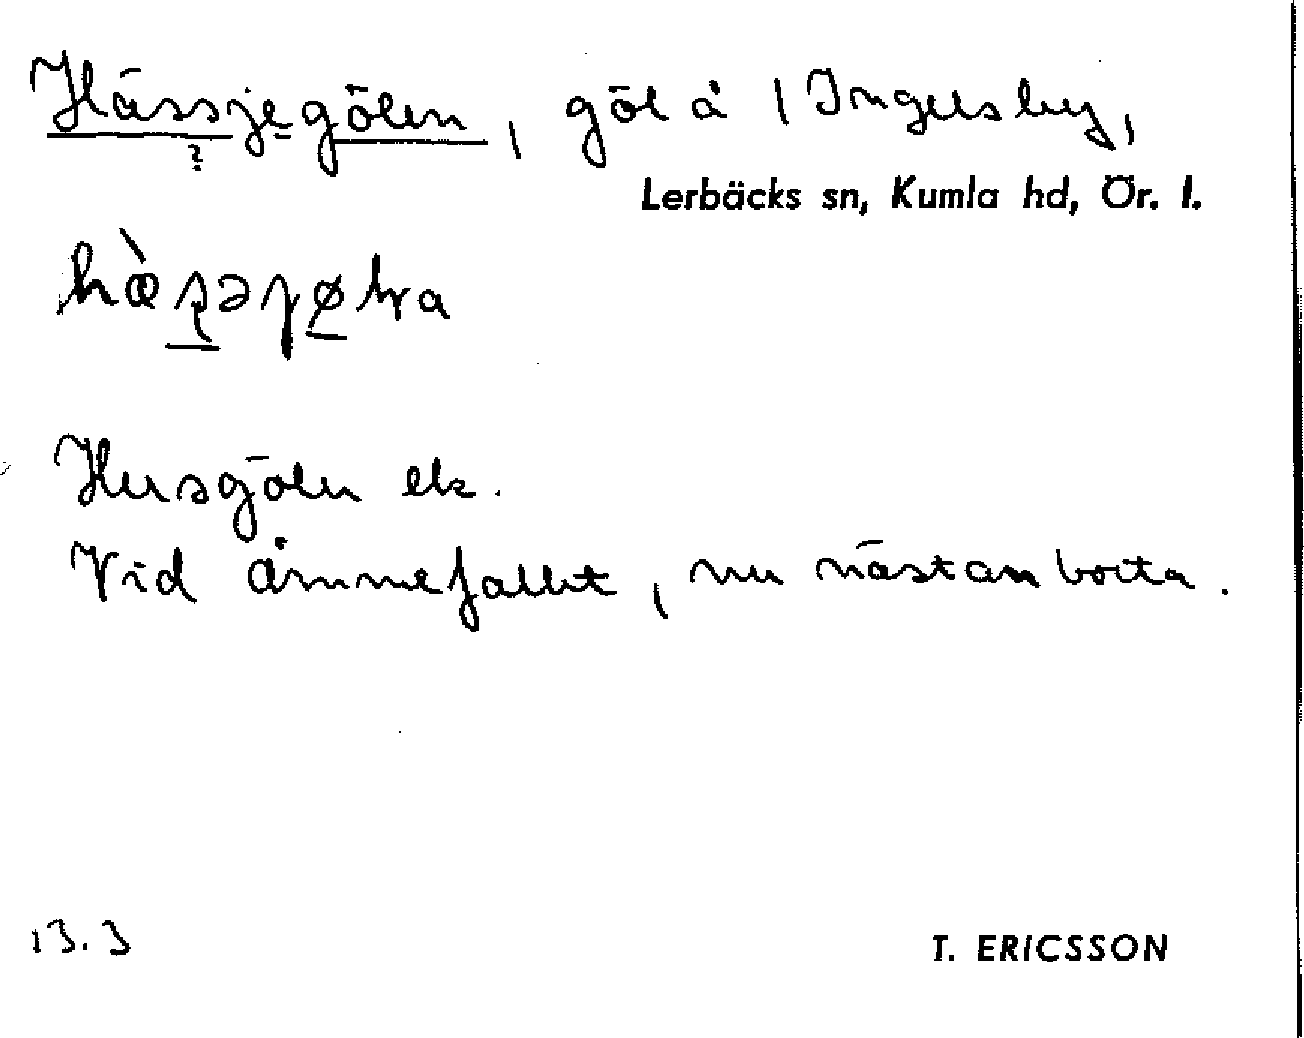 Hässjegölen, göl å 1 Ingelsby,
?
Lerbäcks sn, Kumla hd, Ör. l.
Husgölen ek.
Vid Åmmefallet, nu nästan borta.
13.3
T. ERICSSON